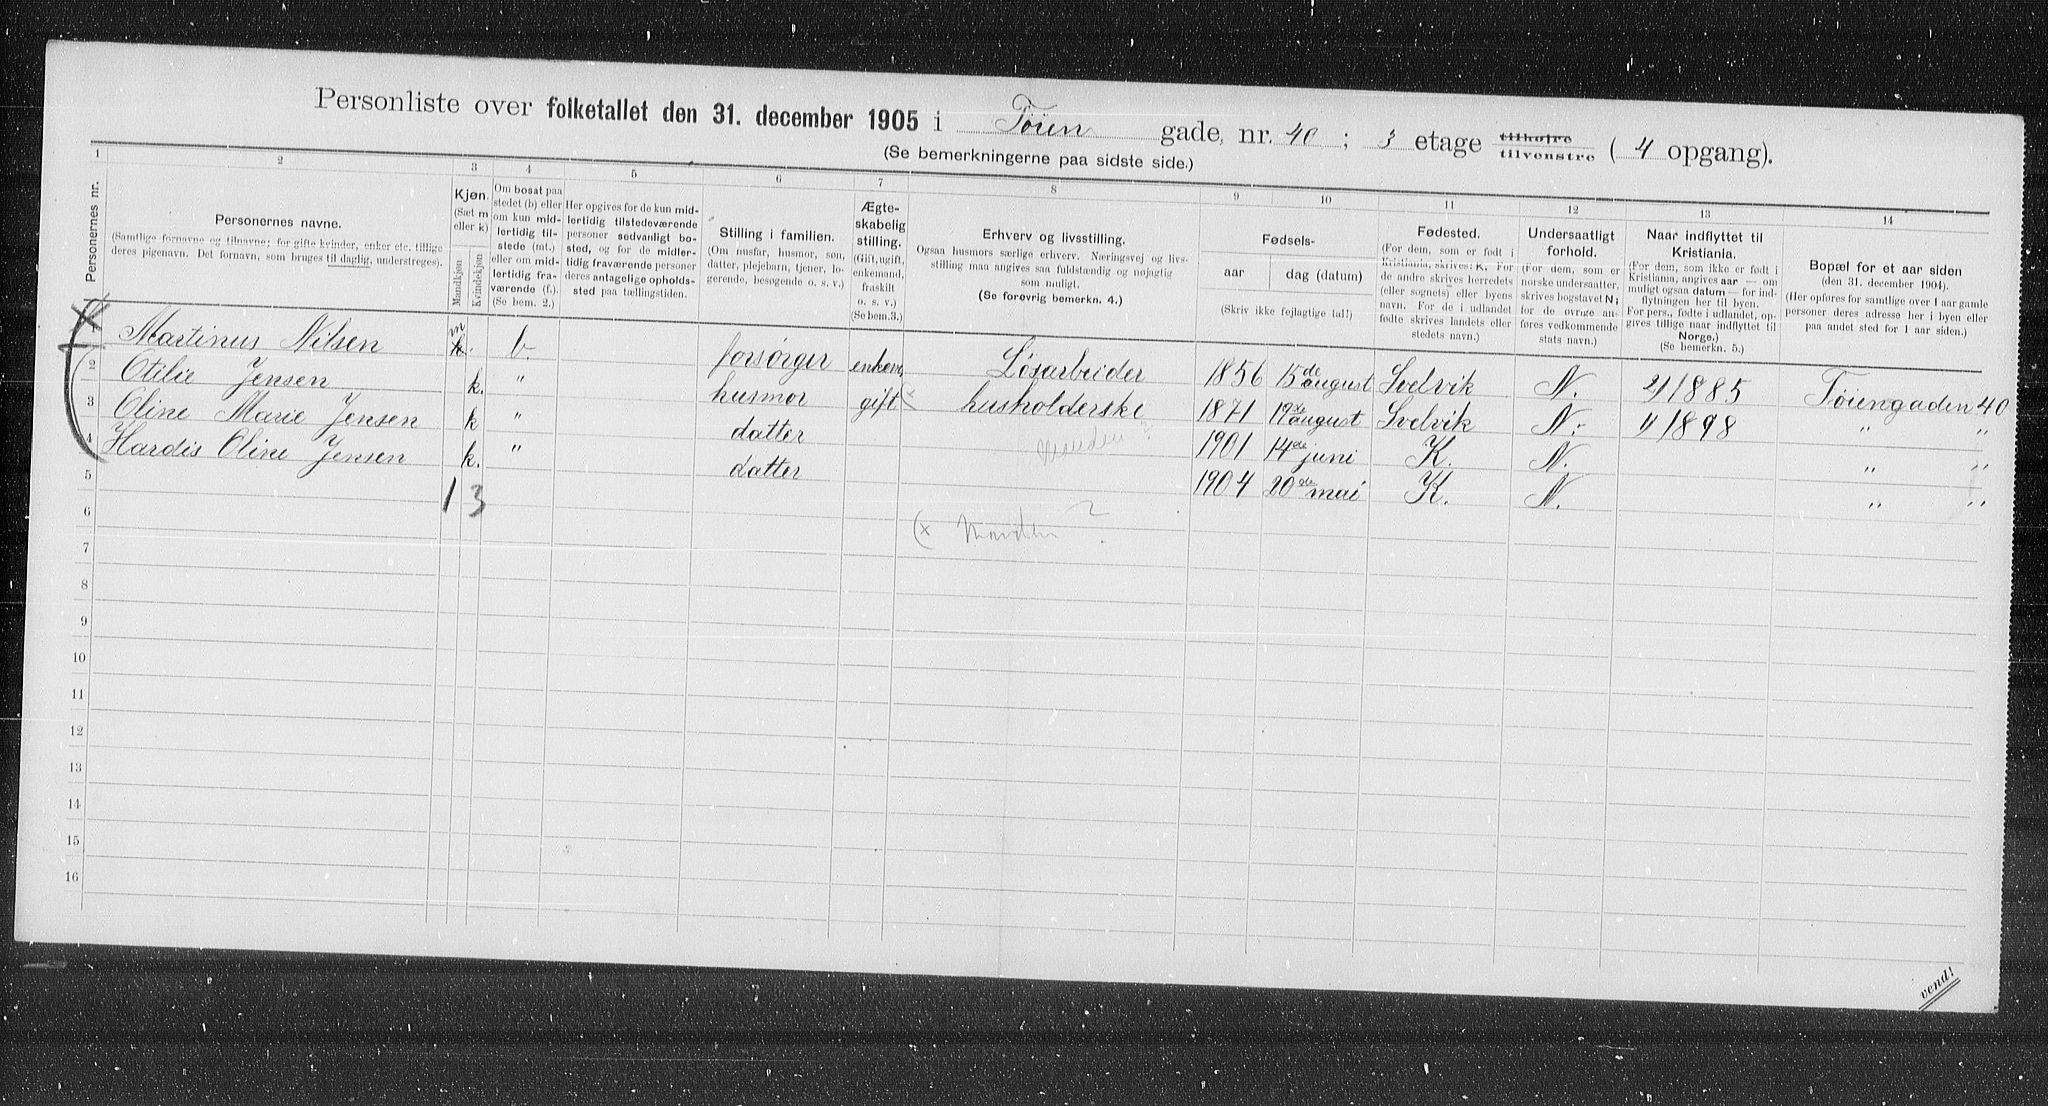 Personliste over folketallet den 31. december 1905 i Tøien gade, nr. 40 ; 3 etage tilhøjre tilvenstre ( 4 opgang).
(Se bemerkningerne paa sidste side.)
1 2 3 4 5 6 7 8 9 10 11 12 13 14
Personernes nr.
Personernes navne.
(Samtlige fornavne og tilnavne; for gifte kvinder, enker etc. tillige deres pigenavn. Det fornavn, som bruges til daglig, understreges).
Kjøn.
(Sæt m eller k)
Mandkjøn
Kvindekjøn
Om bosat paa stedet (b) eller om kun midlertidig tilstede (mt.) eller om midlertidig fraværende (f.).
(Se bem. 2.)
Her opgives for de kun midlertidig tilstedeværende personer sedvanligt bosted, og for de midlertidig fraværende personer deres antagelige opholdssted paa tællingstiden.
Stilling i familien.
(Om husfar, husmor, søn, datter, plejebarn, tjener, logerende, besøgende o. s. v.)
Ægteskabelig stilling.
(Gift, ugift, enkemand, fraskilt o. s. v.)
(Se bem. 3.)
Erhverv og livsstilling.
Ogsaa husmors særlige erhverv. Næringsvej og livsstilling maa angives saa fuldstændig og nøjagtig som muligt.
(Se forøvrig bemerkn. 4.)
Fødsels-
aar dag (datum)
(Skriv ikke fejlagtige tal!)
Fødested.
(For dem, som er født i Kristiania, skrives: K. For de andre skrives herredets (eller sognets) eller byens navn. For de i udlandet fødte skrives landets eller stedets navn.)
Undersaatligt forhold.
(For dem, som er norske undersaatter, skrives bogstavet N; for de øvrige anføres vedkommende stats navn.)
Naar indflyttet til Kristiania.
(For dem, som ikke er født i Kristiania, angives aar — om muligt ogsaa datum — for indflytningen her til byen. For pers., fødte i udlandet, opgives tillige naar indflyttet til Norge.)
(Se bemerkn. 5.)
Bopæl for et aar siden
(den 31. december 1904).
(Her opføres for samtlige over 1 aar gamle personer deres adresse her i byen eller paa andet sted for 1 aar siden.)
Martinus Nilsen m b. forsørger enkem Løsarbeider 1856 15de august Svelvik N. 1885 Tøiengaden 40
2 Otilie Jensen k. " husmor gift husholderske 1871 19de august Svelvik N. 1898 " "
3 Oline Marie Jensen k " datter 1901 14de juni K. N. " "
4 Hardis Oline Jensen k. " datter 1904 20de mai K. N. " "
5 1 3
6 (x Manden ?
7
8
9
10
11
12
13
14
15
16
vend!